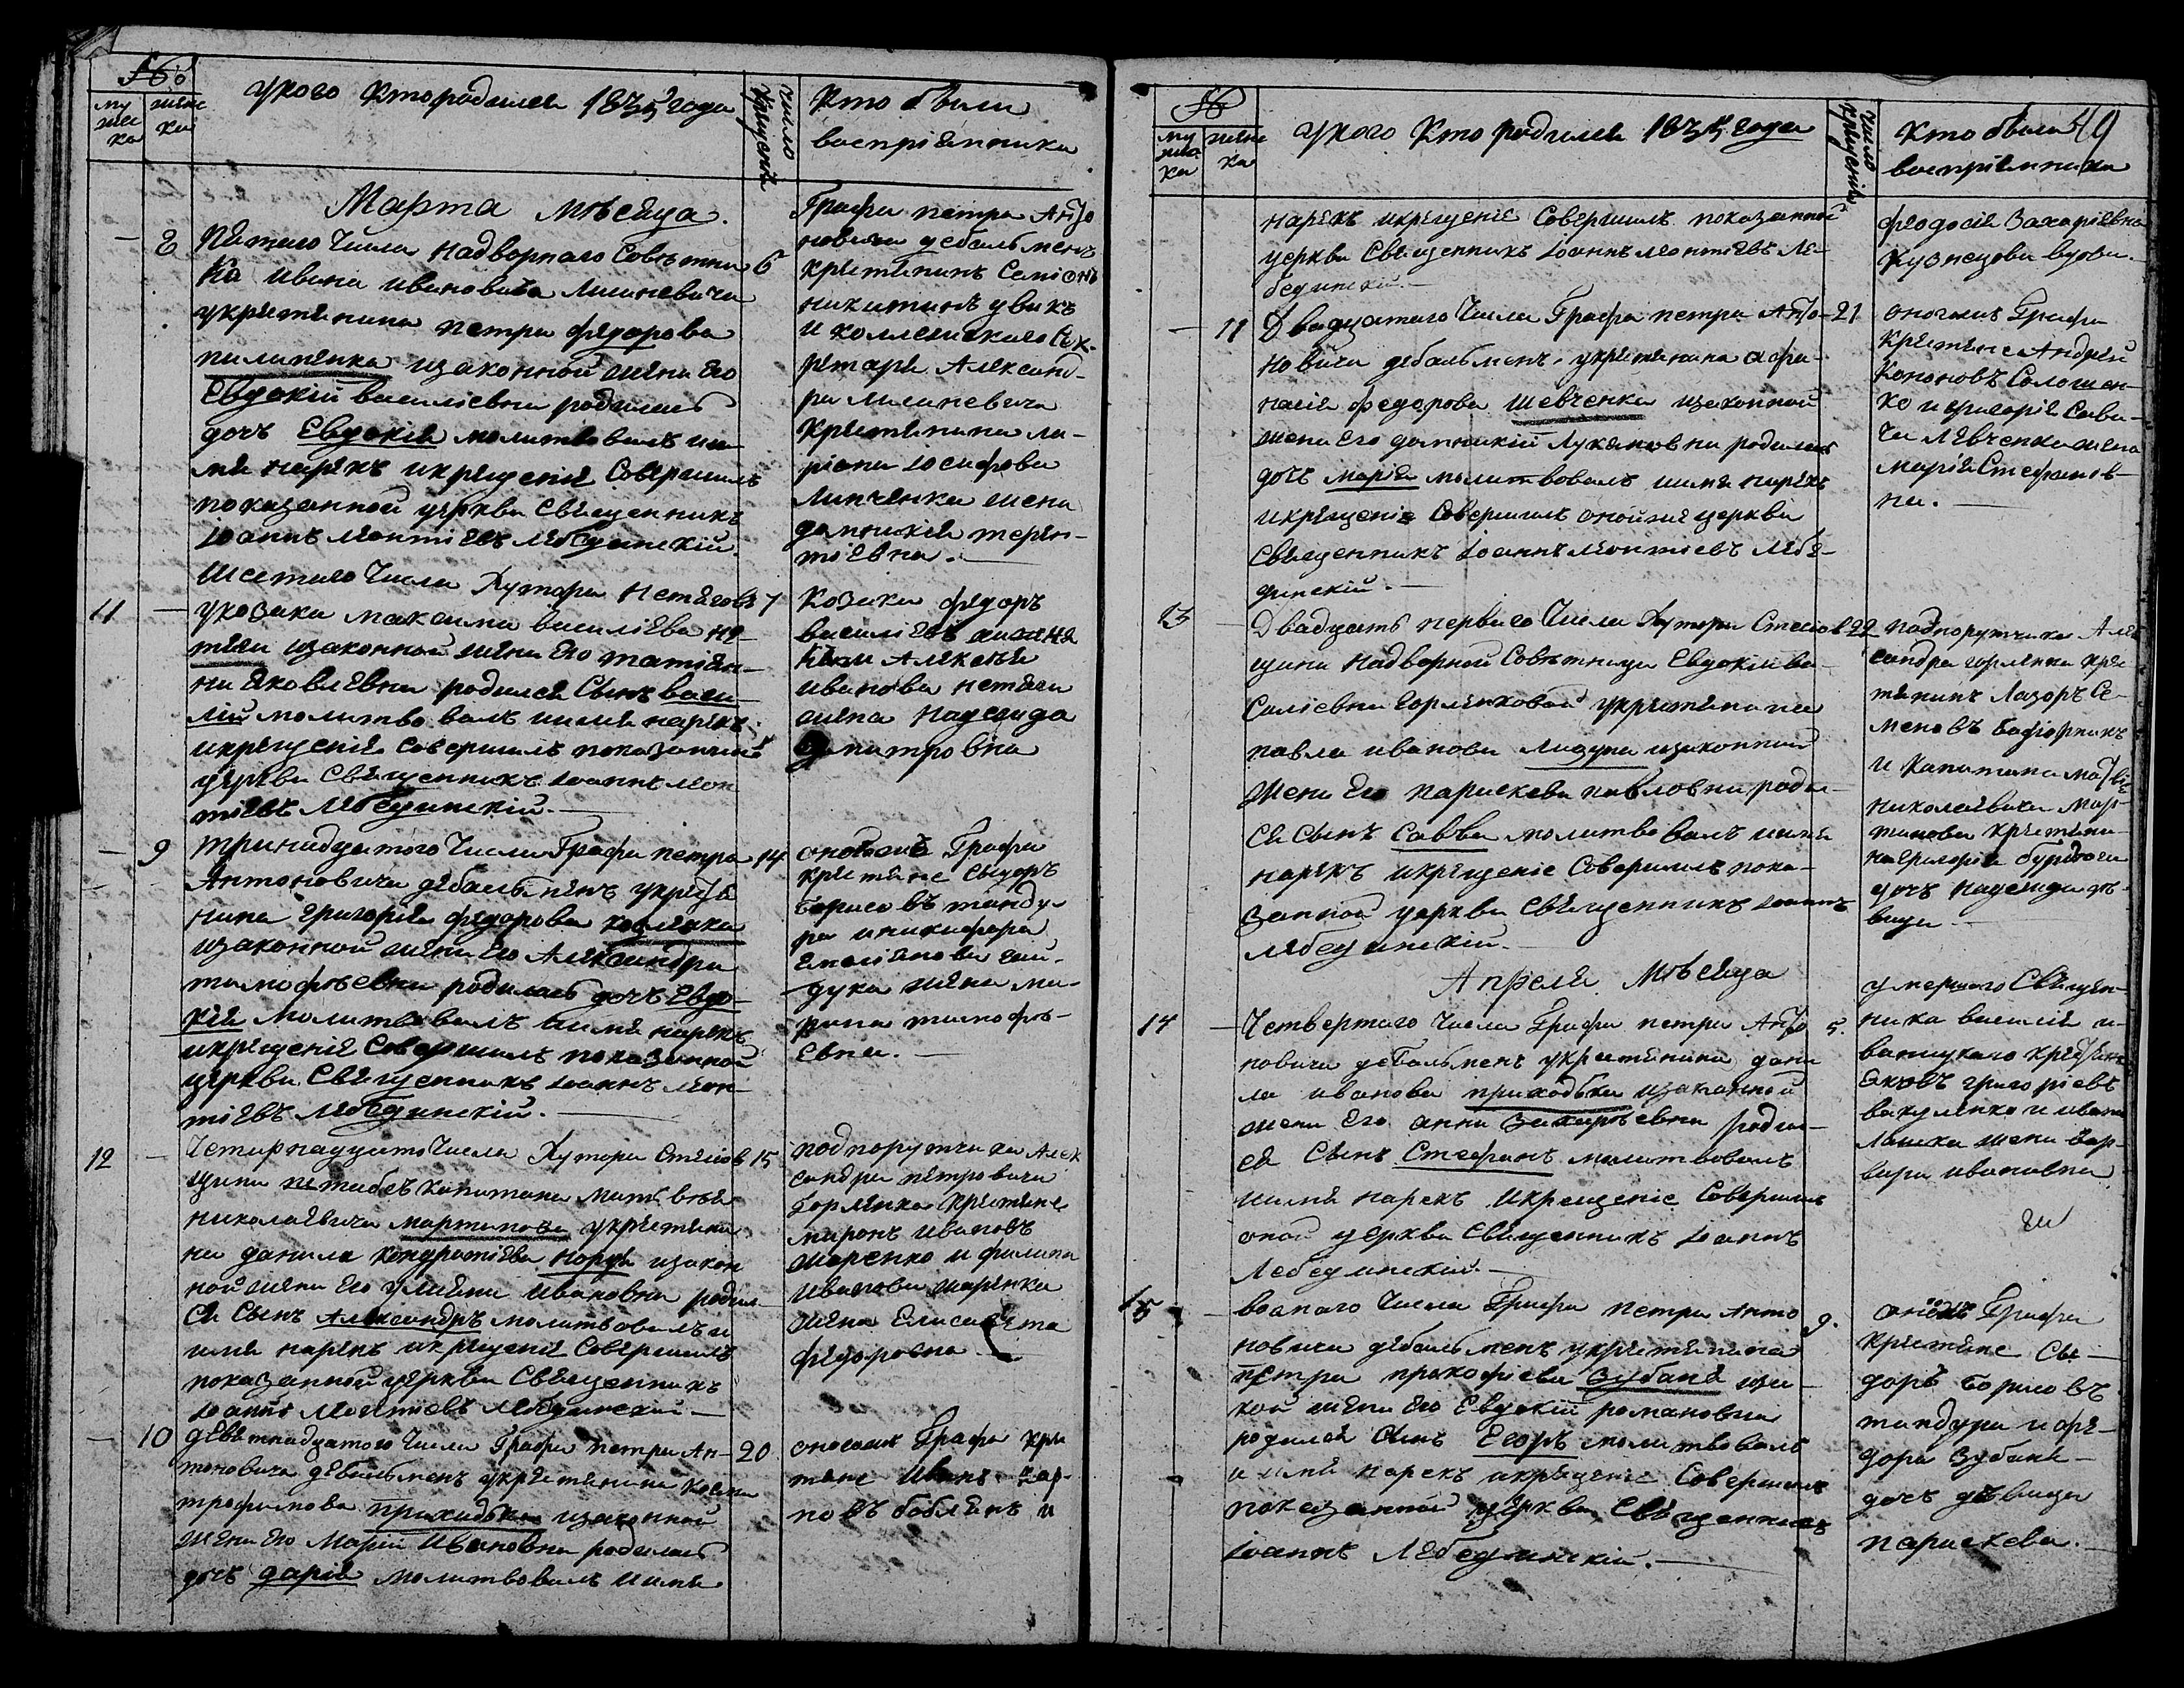 №
му жес ка
женс ка
Укого Кто родился 1835 года
число крещенія
Кто были
воспріемники
Марта мѣсяца.
8
Пятаго Числа Надворнаго Совѣтни
6
ка Ивана Ивановича Лисаневича
укрестянина петра федорова
пилипенка изаконной жены Его
Евдокіи василіевны родилась
дочь Евдокія молитвовалъ и и
мя нарекъ икрещеніе Совершилъ
показанной церкви Священникъ
Іоаннъ Леонтіевъ Лебединскій
Графа петра Анто
новича дебальменъ
крестянинъ Семіонъ
никитинъ
и коллежскаго Сек-
ретаря Александ-
ра Лисаневича
крестянина ла-
ріона Іосифова
Липченка жена
домникія терен-
тіевна.
11
Шестаго Числа Хутора Нетяговъ
7
укозака максима василіева не-
тяги изаконной жены Его татіян-
ны яковлевны родился Сынъ васи-
лій молитвовалъ иимя нарекъ
икрещеніе совершилъ показанной
церкви Священникъ Іоаннъ Леон
тіевъ Лебединскій.
Козаки федоръ
василіевъ
Алексѣя
иванова нетяги
жена Надежда
дмитровна
9
тринадцатого Числа Графа петра
14
Антоновича дебальменъ укрестя
нина григорія федорова козленка
изаконной жены Его Александры
тимофѣевны родилась дочь Евдо-
кія молитвовалъ иимя нарекъ
икрещеніе Совершилъ показанной
церкви Священникъ Іоаннъ Леон-
тіевъ Лебединскій.
оногожъ Графа
крестяне Сыдоръ
борисовъ танду-
ра иникифора
Емеліянова гай-
дука жена ма-
рина тимофѣ-
Евна.
12
Четирнадцато Числа Хутора Стясов
15
щина штабсъ капитана матвѣя
николаевича мартинова укрестяни
на данила кондратіева норца изакон
ной жены Его улияны ивановны родил-
ся Сынъ Александръ молитвовалъ и
имя нарекъ икрещеніе Совершилъ
показанной церкви Священникъ
Іоаннъ Леонтіевъ Лебединскій
подпорутчика Алек
сандра петровича
Горленка крестяне
миронъ ивановъ
шаренко и филипа
иванова шаренка
жена Елисавета
федоровна
10
девятнадцатого Числа Графа петра Ан-
20
тоновича дебальменъ укрестянина косми
трофимова приходька изаконной
жены Его Маріи Ивановны родилась
дочь дарія молитвовалъ иимя
оногожъ Графа кре
тяне Иванъ кар-
повъ бобленъ и
№
му жес ка
женс ка
укого Кто родился 1835 года
число крещенія
Кто были
49
воспріемники
нарекъ икрещеніе Совершилъ показанной
церкви Священникъ Іоаннъ Леонтіевъ Ле-
бединскій.
феодосія Захаріевна
Кузнецова вдова.
11
Двадцатого Числа Графа петра Анто-
21
новича дебальменъ укрестянина афа-
насія федорова шевченка изаконной
жены Его домникіи Лукяновны родилась
дочь марія молитвовалъ иимя нарекъ
икрещеніе Совершилъ онойже церкви
Священникъ Іоаннъ Леонтіевъ Лебе-
динскій.
оногожъ Графа
крестяне Андрей
Кононовъ Соломен-
ко и григорія Сави-
ча Левченка жена
марія Стефанов-
на.
13
Двадцать перваго Числа Хутора Стясов
22
щина Надворной Совѣтницы Евдокіи ва-
силіевны горленковой укрестянина
павла иванова лизуна изаконной
жены Его параскевы павловны роди-
ся сынъ Савва молитвовалъ иимя
нарекъ икрещеніе Совершилъ пока-
занной церкви Священникъ Іоаннъ
Лебединскій.
подпорутчика Але
сандра горленка кре
тянинъ Лазоръ Се-
меновъ
и капитана матвѣя
николаевича мар-
тинова крестяни-
на григорія
дочь надежда дѣ-
вица
Апреля Мѣсяца
14
Четвертаго Числа Графа петра Анто
5.
новича дебальменъ укрестянина дани
ла иванова приходька изаконной
жены Его анны Захарѣевны родил-
ся Сынъ Стефанъ молитвовалъ
иимя нарекъ икрещеніе Совершилъ
оной церкви Священникъ Іоаннъ
Лебединскій.
умершаго Священ-
ника василія и-
ваницкаго крестян
яковъ григоріевъ
вакуленко и ивана
лашка жена вар-
вара ивановна
15
восмаго Числа Графа петра Анто
9.
новича дебальменъ укрестянина
петра прокофіева Зубаня иза-
кой жены Его Евдокіи романовны
родился Сынъ Егоръ молитвовалъ
иимя нарекъ икрещеніе Совершилъ
показанной церкви Священникъ
Іоаннъ Лебединскій.
оногожъ Графа
крестяне Сы-
доръ борисовъ
тандура и фе-
дора Зубаня
дочь дѣвица
параскева.